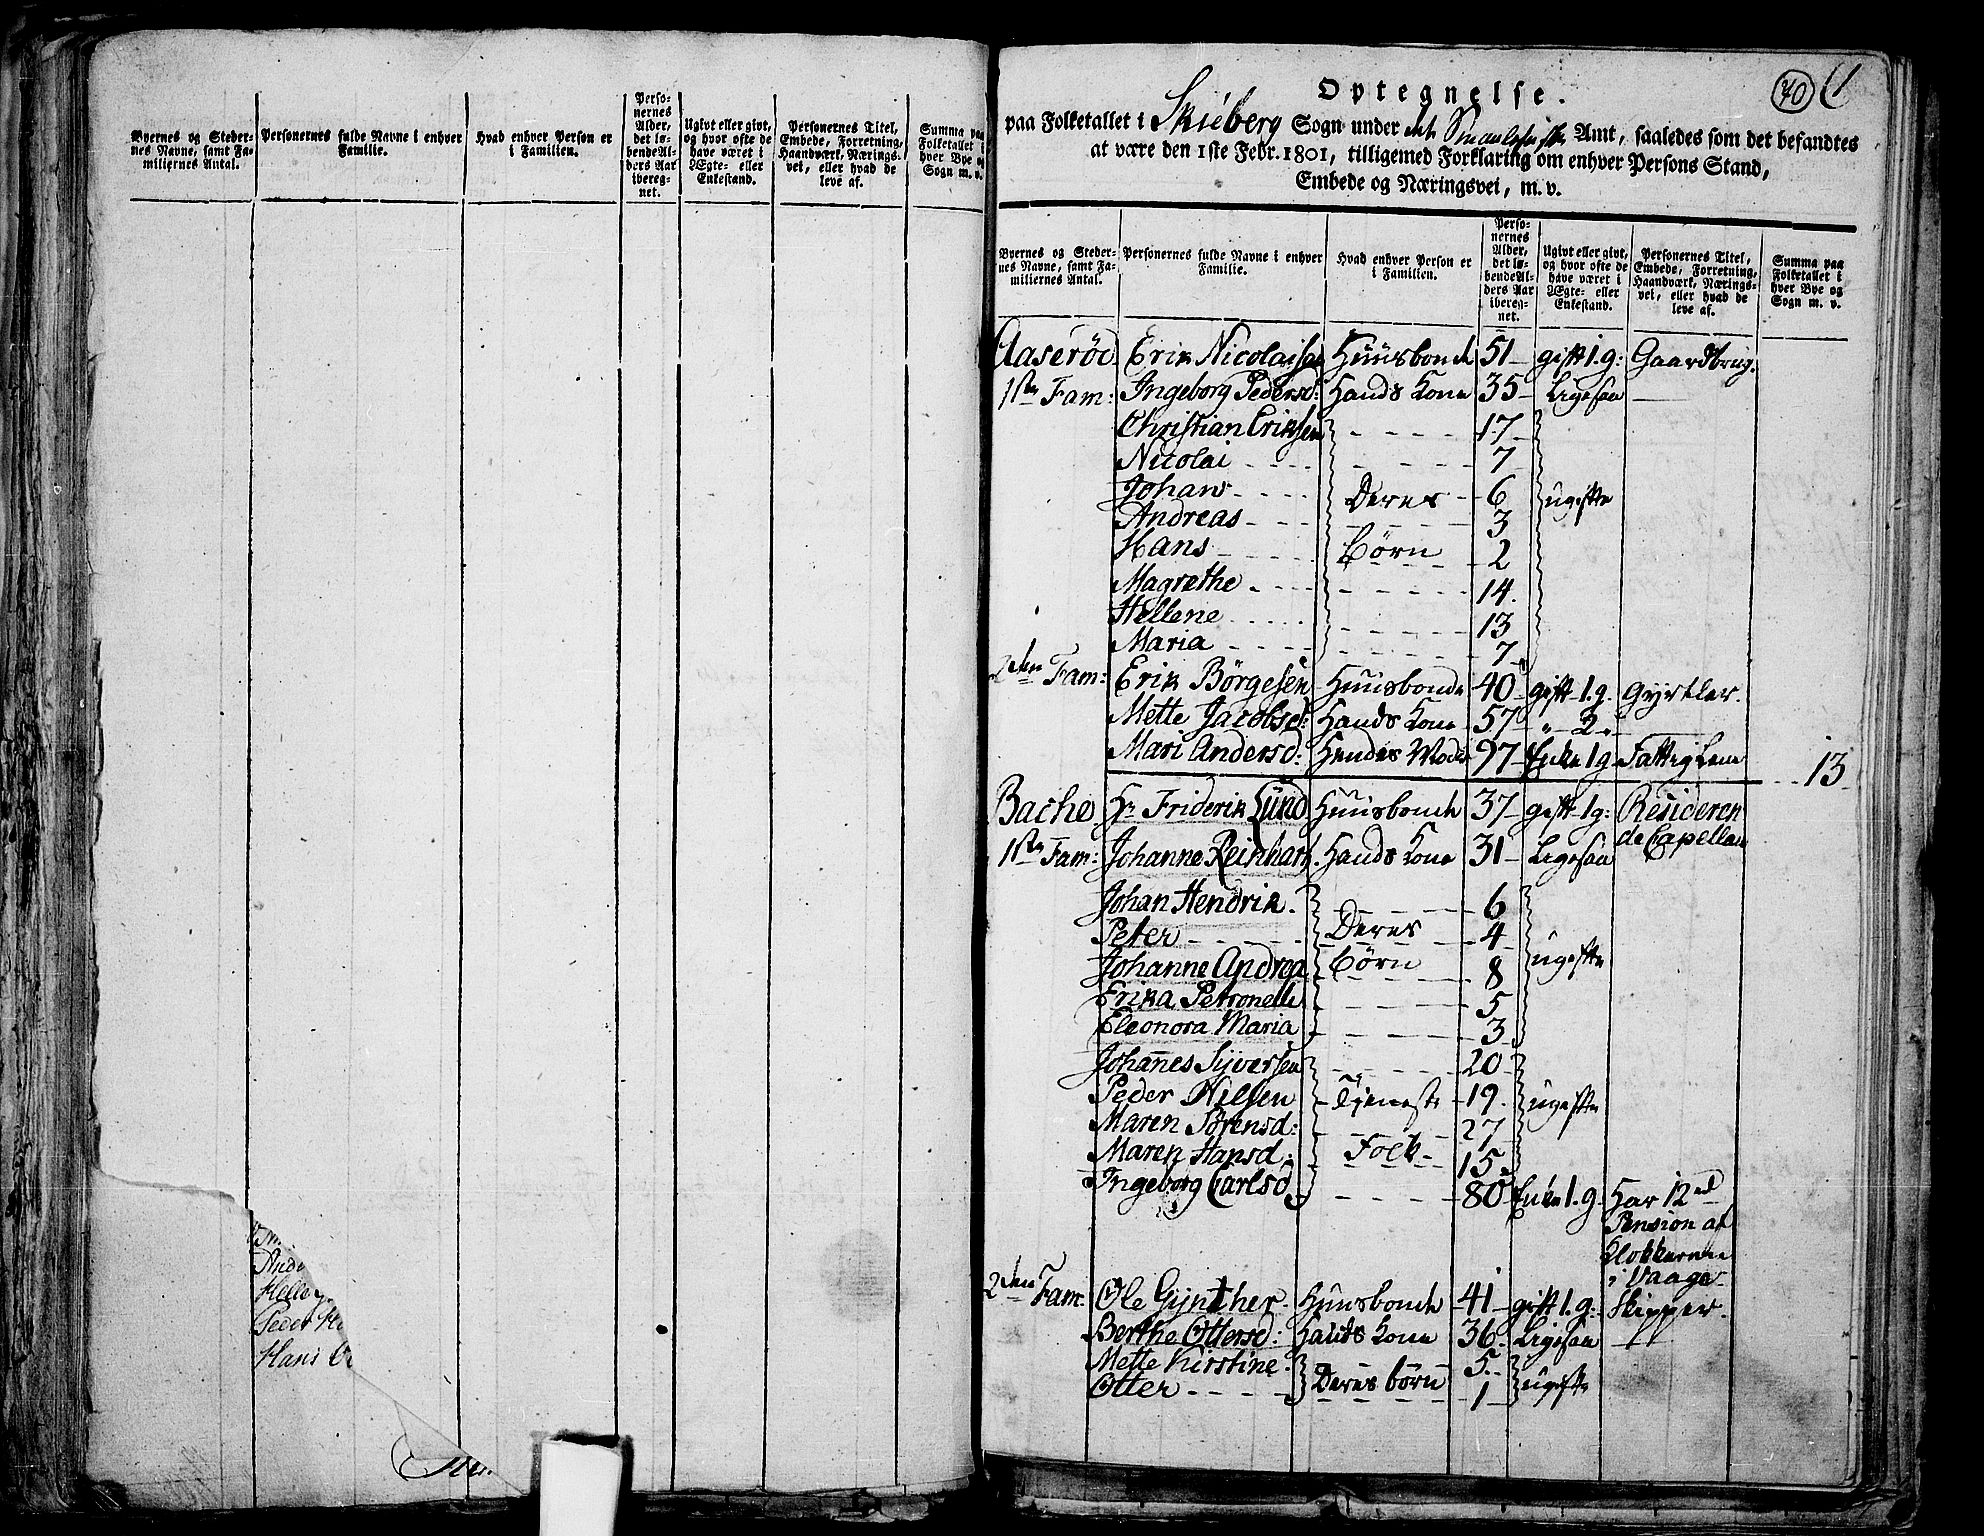 Byernes og Steder-
nes Navne, samt Fa-
miliernes Antal.
Personernes fulde Navne i enhver
Familie.
Hvad enhver Person er
i Familien.
Perso-
nernes
Alder,
det lø-
bende Al-
ders Aar
ibereg-
net.
Ugivt eller givt,
og hvor ofte de
have været i
Ægte- eller
Enkestand.
Personernes Titel,
Embede, Forretning,
Haandværk, Nærings-
vei, eller hvad de
leve af.
Summa paa
Folketallet i
hver Bye og
Sogn m. v.
Peder
Hans
70
Optegnelse.
paa Folketallet i Skieberg Sogn under det Smaalehnske Amt, saaledes som det befandtes
at være den 1ste Febr. 1801, tilligemed Forklaring om enhver Persons Stand,
Embede og Næringsvei, m. v.
Byernes og Steder-
nes Navne, samt Fa-
miliernes Antal.
Personernes fulde Navne i enhver
Familie.
Hvad enhver Person er
i Familien.
Perso-
nernes
Alder,
det lø-
bende Al-
ders Aar
ibereg-
net.
Ugivt eller givt,
og hvor ofte de
have været i
Ægte- eller
Enkestand.
Personernes Titel,
Embede, Forretning,
Haandværk, Nærings-
vei, eller hvad de
leve af.
Summa paa
Folketallet i
hver Bye og
Sogn m. v.
Aaserød Erik Nicolaisen Huusbonde 51 gift 1. g: Gaardbrug.
1ste Fam: Ingeborg Pedersd: Hands Kone 35 Ligesaa
Christian Eriksen 17
Nicolai 7
Johan Deres 6 ugifte
Andreas 3
Hans Børn 2
Magrethe 14
Hellene 13
Maria 7
2den Fam: Erik Børgesen Huusbonde 40 gift 1. g. Gyrtler.
Mette Jacobsd: Hands Kone 57 " 2 "
Mari Andersd: Hendes Moder 97 Enke 1 g Fattig Lem
13
Bache Hr Friderik Lund Huusbonde 37 gift 1 g: Resideren
de Capellan
1ste Fam: Johanne Reinhart Hands Kone 31 Ligesaa
Johan Hendrik. 6
Peter Deres 4
Johanne Andrea Børn 8 ugifte
Erika Petronelle 5
Eleonora Maria 3
Johannes Syversen 20
Peder Nilsen Tjeneste 19 ugifte
Maren Sørensd: 27
Maren Hansd: Folk 15
Ingeborg Carlsd 80 Enke 1. g. Har 12 rd
Pension af
Klokkerne
i Vaage
2den Fam. Ole Gynther Huusbonde 41 gift 1. g: Skipper.
Berthe Ottersd: Hands Kone 36 Ligesaa
Mette Kirstine 5
Otter Deres børn 1 ugifte